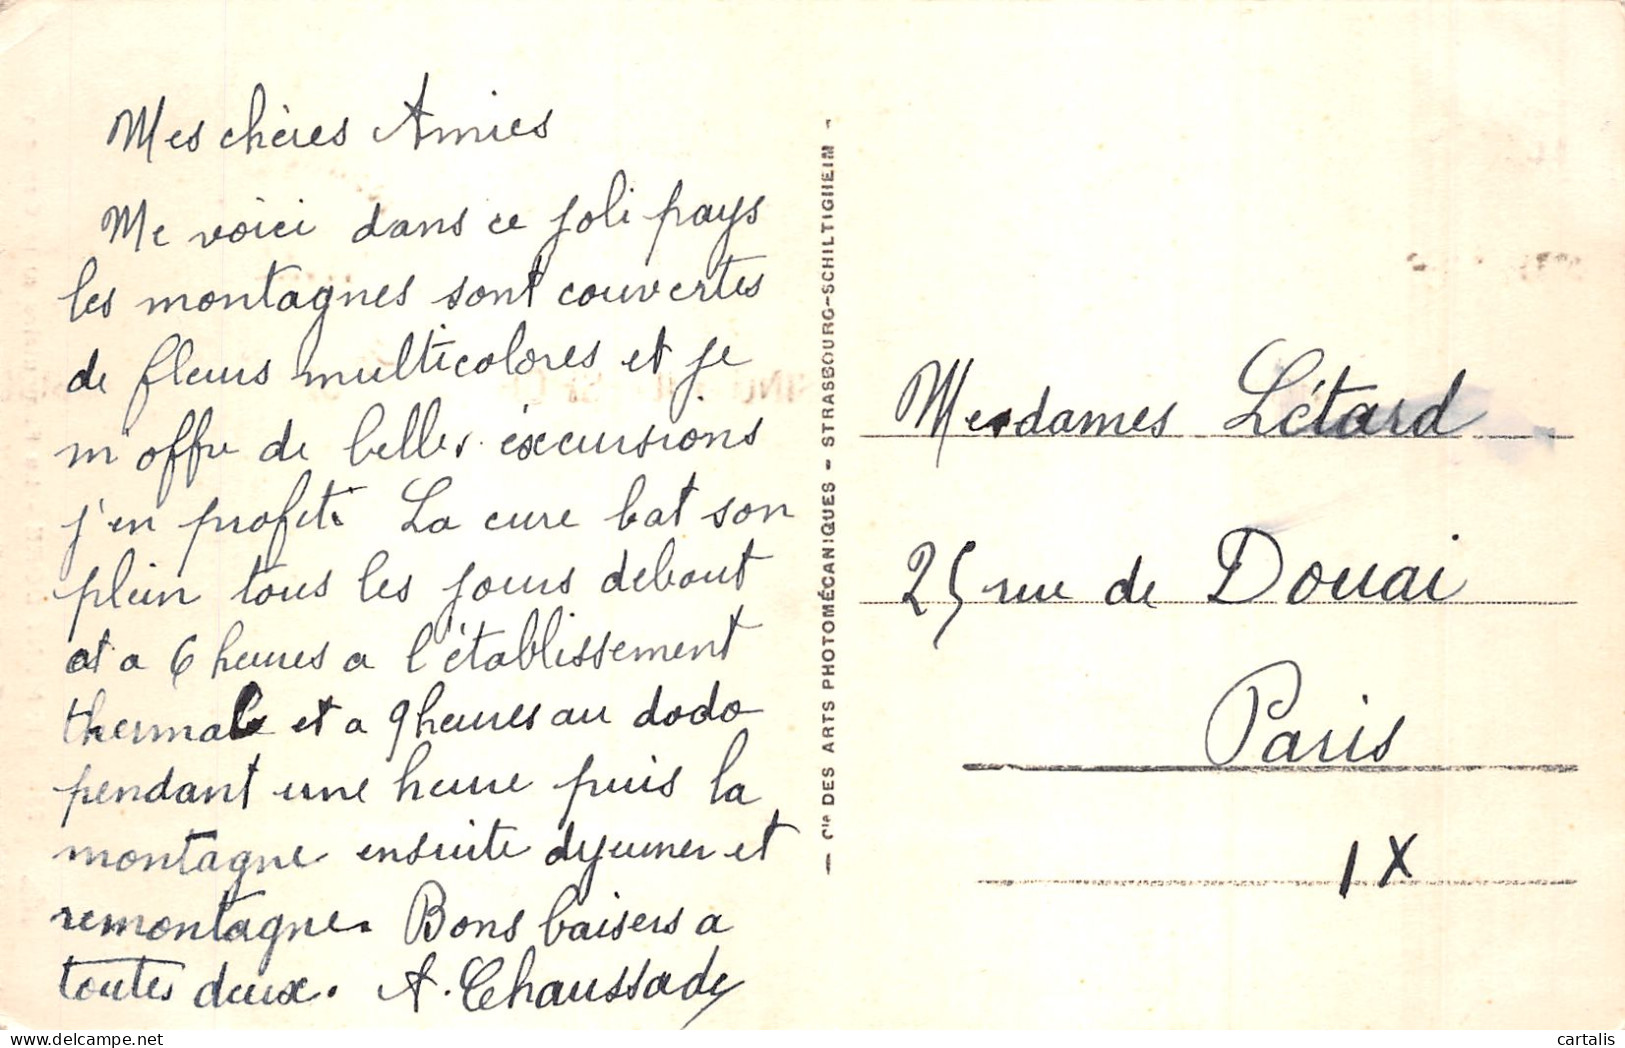 Mes chères Amies
Me voici dans ce joli pays
les montagnes sont couvertes
de fleurs multicolores et je
m'offre de belles excursions
j'en profite. La cure bat son
plein tous les jours debout
at a 6 heures a l'établissement
thermal et a 9 heures au dodo
pendant une heure puis la
montagne ensuite dejeuner et
remontagne. Bons baisers a
toutes deux. A. Chaussade
— Cie DES ARTS PHOTOMÉCANIQUES - STRASBOURG-SCHILTIGHEIM -
Mesdames Létard
25 rue de Douai
Paris
IX
cartalis